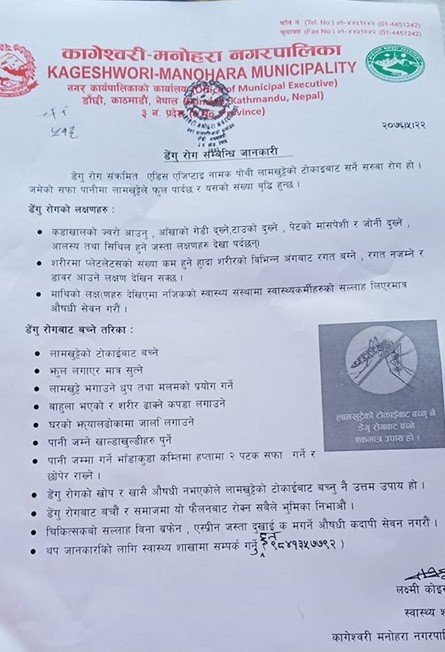 फोन नं. (Tel. No.) ०१-४४५१२४२ (01-4451242)
फ्याक्स (Fax No.) ०१-४४५१२४२ (01-4451242)
कागेश्वरी-मनोहरा नगरपालिका
KAGESHWORI-MANOHARA MUNICIPALITY
नगर कार्यपालिकाको कार्यालय (Office of Municipal Executive)
डाँछी, काठमाडौं, नेपाल Kathmandu, Nepal)
३ नं. प्रदेश Province)
२०७६।५।२२
डेंगु रोग सम्बिन्ध जानकारी
डेंगु रोग संक्रमित एडिस एजिप्टाइ नामक पोथी लामखुट्टेको टोकाइबाट सर्ने सरुवा रोग हो ।
जमेको सफा पानीमा लामखुट्टेले फुल पार्दछ र यसको संख्या वृद्धि हुन्छ ।
डेंगु रोगको लक्षणहरु :
कडाखालको ज्वरो आउनु , आँखाको गेडी दुख्ने,टाउको दुख्ने , पेटको मांसपेशी र जोर्नी दुख्ने ,
आलस्य तथा सिथिल हुने जस्ता लक्षणहरु देखा पर्दछन्।
शरीरमा प्लेटलेटसको संख्या कम हुने हुादा शरीरको विभिन्न अंगबाट रगत बग्ने , रगत नजम्ने र
डाबर आउने लक्षण देखिन सक्छ ।
माथिको लक्षणहरु देखिएमा नजिकको स्वास्थ्य संस्थामा स्वास्थ्यकर्मीहरुको सल्लाह लिएरमात्र
औषधी सेवन गरौं ।
डेंगु रोगबाट बच्ने तरिका :
लामखुट्टेको टोकाईबाट बच्ने
झुल लगाएर मात्र सुत्ने
लामखुट्टे भगाउने धुप तथा मलमको प्रयोग गर्ने
बाहुला भएको र शरीर ढाक्ने कपडा लगाउने
घरको झ्यालढोकामा जाली लगाउने
पानी जम्ने खाल्डाखुल्डीहरु पुर्ने
पानी जम्मा गर्ने भाँडाकुडा कम्तिमा हप्तामा २ पटक सफा गर्ने र
छोपेर राख्ने ।
लामखुट्टेको टोकाईबाट बच्नु नै
डेंगु रोगबाट बच्ने
एकमात्र उपाय हो !
डेंगु रोगको खोप र खासै औषधी नभएकोले लामखुट्टेको टोकाइबाट बच्नु नै उत्तम उपाय हो ।
डेंगु रोगबाट बचौं र समाजमा यो फैलनबाट रोक्न सबैले भुमिका निभाऔं ।
चिकित्सकको सल्लाह विना ब्रफेन , एस्प्रीन जस्ता दुखाई क मगर्ने औषधी कदापी सेवन नगरौं ।
थप जानकारीको लागि स्वास्थ्य शाखामा सम्पर्क गर्नु ९८४१३५७७९२ )
लक्ष्मी
स्वास्थ्य
कागेश्वरी मनोहरा